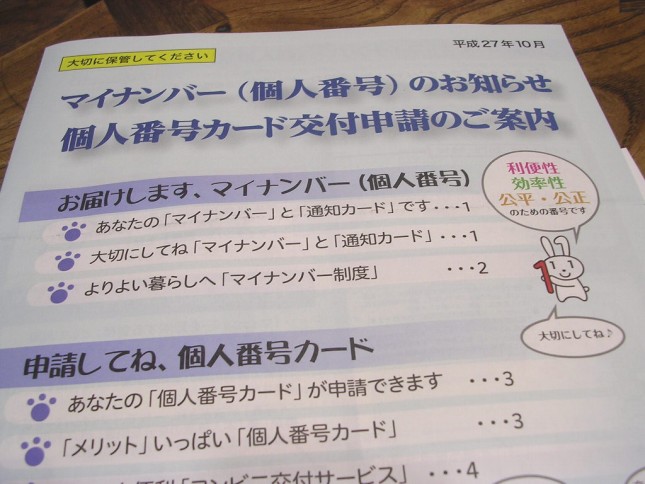 大切に保管してください
平成27年10月
マイナンバー（個人番号）のお知らせ
個人番号カード交付申請のご案内
お届けします、マイナンバー（個人番号）
あなたの「マイナンバー」と「通知カード」です・・・1
大切にしてね「マイナンバー」と「通知カード」・・・1
よりよい暮らしへ「マイナンバー制度」 ・・・2
利便性
効率性
公平・公正
のための番号です
1
大切にしてね♪
申請してね、個人番号カード
あなたの「個人番号カード」が申請できます ・・・3
「メリット」いっぱい「個人番号カード」 ・・・3
便利「コンビニ交付サービス」 ・・・4